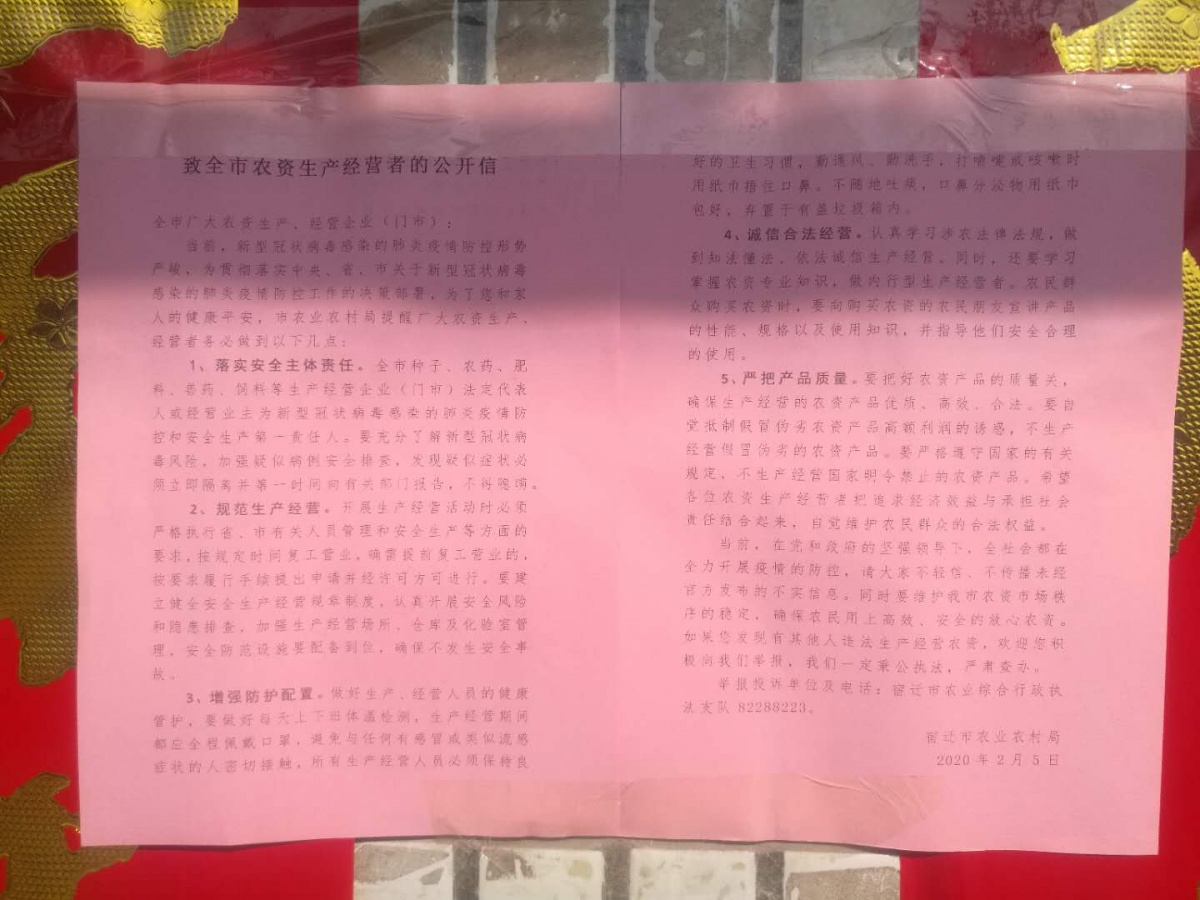 致全市农资生产经营者的公开信
全市广大农资生产、经营企业（门市）：
当前，新型冠状病毒感染的肺炎疫情防控形势
严峻，为贯彻落实中央、省、市关于新型冠状病毒
感染的肺炎疫情防控工作的决策部署，为了您和家
人的健康平安，市农业农村局提醒广大农资生产、
经营者务必做到以下几点：
1、落实安全主体责任。全市种子、农药、肥
料、兽药、饲料等生产经营企业（门市）法定代表
人或经营业主为新型冠状病毒感染的肺炎疫情防
控和安全生产第一责任人。要充分了解新型冠状病
毒风险，加强疑似病例安全排查，发现疑似症状必
须立即隔离并第一时间向有关部门报告，不得瞒哨。
2、规范生产经营。开展生产经营活动时必须
严格执行省、市有关人员管理和安全生产等方面的
要求，按规定时间复工营业。确需提前复工营业的，
按要求履行手续提出申请并经许可方可进行。要建
立健全安全生产经营规章制度，认真开展安全风险
和隐患排查，加强生产经营场所、仓库及化验室管
理，安全防范设施要配备到位，确保不发生安全事
故。
3、增强防护配置。做好生产、经营人员的健康
管护，要做好每天上下班体温检测，生产经营期间
都应全程佩戴口罩，避免与任何有感冒或类似流感
症状的人密切接触，所有生产经营人员必须保持良
好的卫生习惯，勤通风、勤洗手，打喷嚏或咳嗽时
用纸巾捂住口鼻。不随地吐痰，口鼻分泌物用纸巾
包好，弃置于有盖垃圾箱内。
4、诚信合法经营。认真学习涉农法律法规，做
到知法懂法、依法诚信生产经营。同时，还要学习
掌握农资专业知识，做内行型生产经营者。农民群
众购买农资时，要向购买农资的农民朋友宣讲产品
的性能、规格以及使用知识，并指导他们安全合理
的使用。
5、严把产品质量。要把好农资产品的质量关，
确保生产经营的农资产品优质、高效、合法。要自
觉抵制假冒伪劣农资产品高额利润的诱惑，不生产
经营假冒伪劣的农资产品。要严格遵守国家的有关
规定，不生产经营国家明令禁止的农资产品。希望
各位农资生产经营者把追求经济效益与承担社会
责任结合起来，自觉维护农民群众的合法权益。
当前，在党和政府的坚强领导下，全社会都在
全力开展疫情的防控，请大家不轻信、不传播未经
官方发布的不实信息。同时要维护我市农资市场秩
序的稳定，确保农民用上高效、安全的放心农资。
如果您发现有其他人违法生产经营农资，欢迎您积
极向我们举报，我们一定秉公执法，严肃查办。
举报投诉单位及电话：宿迁市农业综合行政执
法支队 82288223。
宿迁市农业农村局
2020 年 2 月 5 日